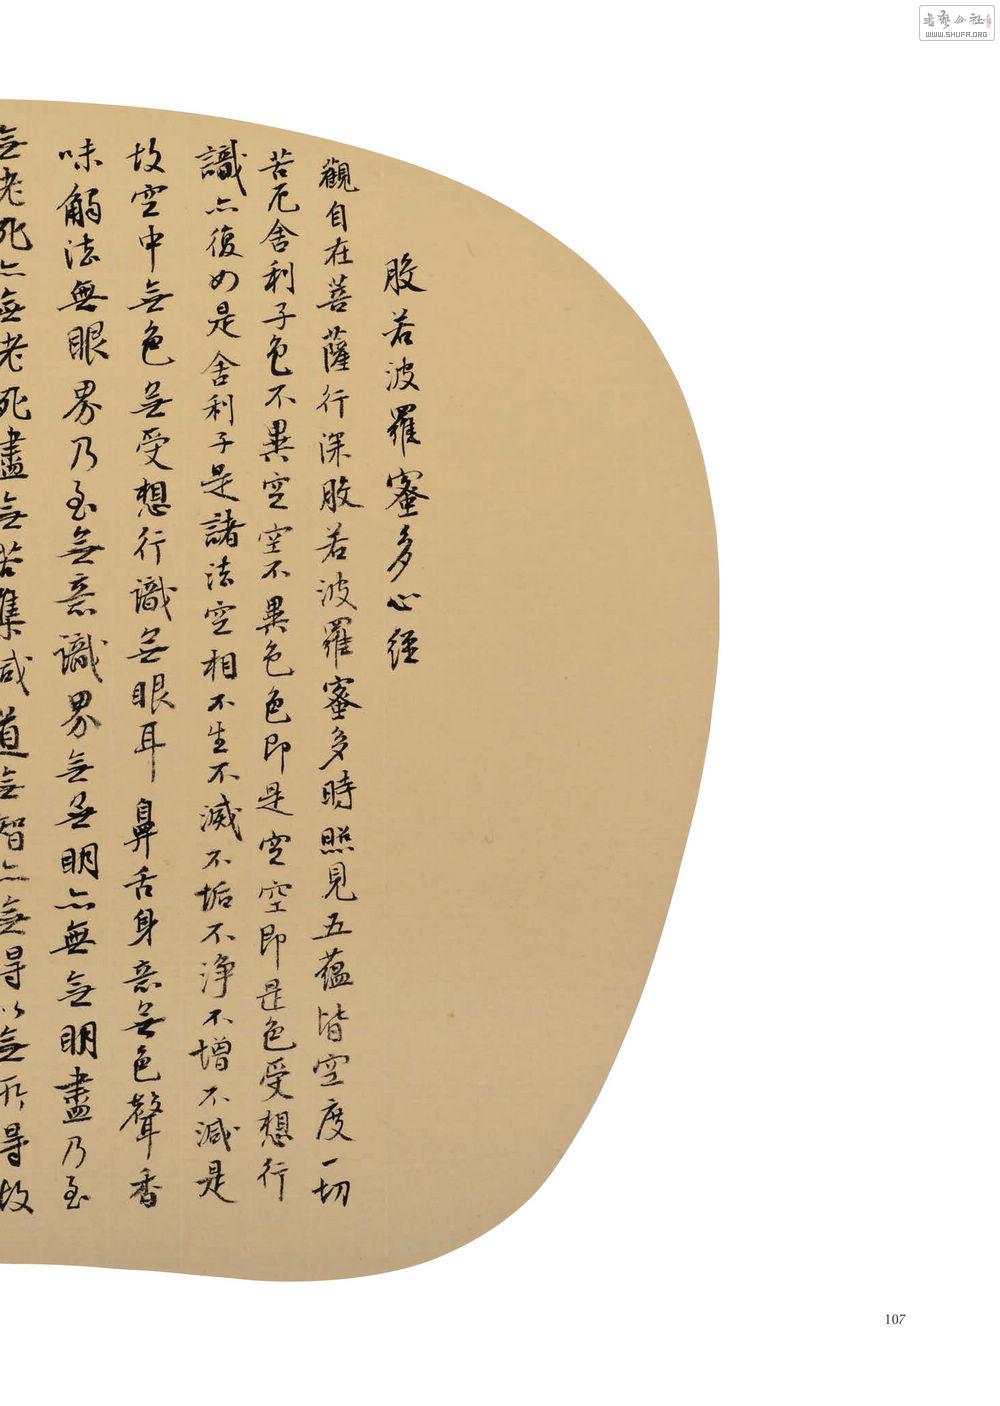 般若波羅蜜多心經
觀自在菩薩行深般若波羅蜜多時照見五蘊皆空度一切
苦厄舍利子色不異空空不異色色即是空空即是色受想行
識亦復如是舍利子是諸法空相不生不滅不垢不淨不增不減是
故空中無色無受想行識無眼耳鼻舌身意無色聲香
味觸法無眼界乃至無意識界無無明亦無無明盡乃至
無老死亦無老死盡無苦集滅道無智亦無得以無所得故
107
WWW.SHUFA.ORG